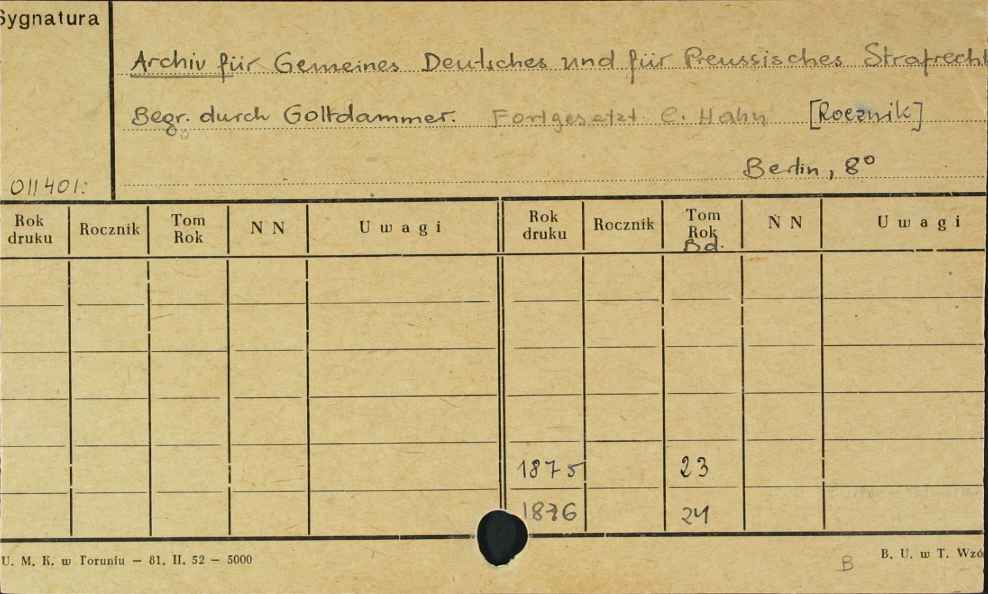 Sygnatura
Archiv für Gemeines Deutsches und für Preussisches Strafrecht
Begr. durch Goltdammer. Fortgesetzt C. Hahn [Rocznik]
Berlin, 8°
011401:
Rok druku Rocznik Tom Rok N N Uwagi Rok druku Rocznik Tom Rok Bd. N N Uwagi
1875 23
1876 24
U. M. K. w Toruniu – 81. II. 52 – 5000 B. U. w T. Wzó
B